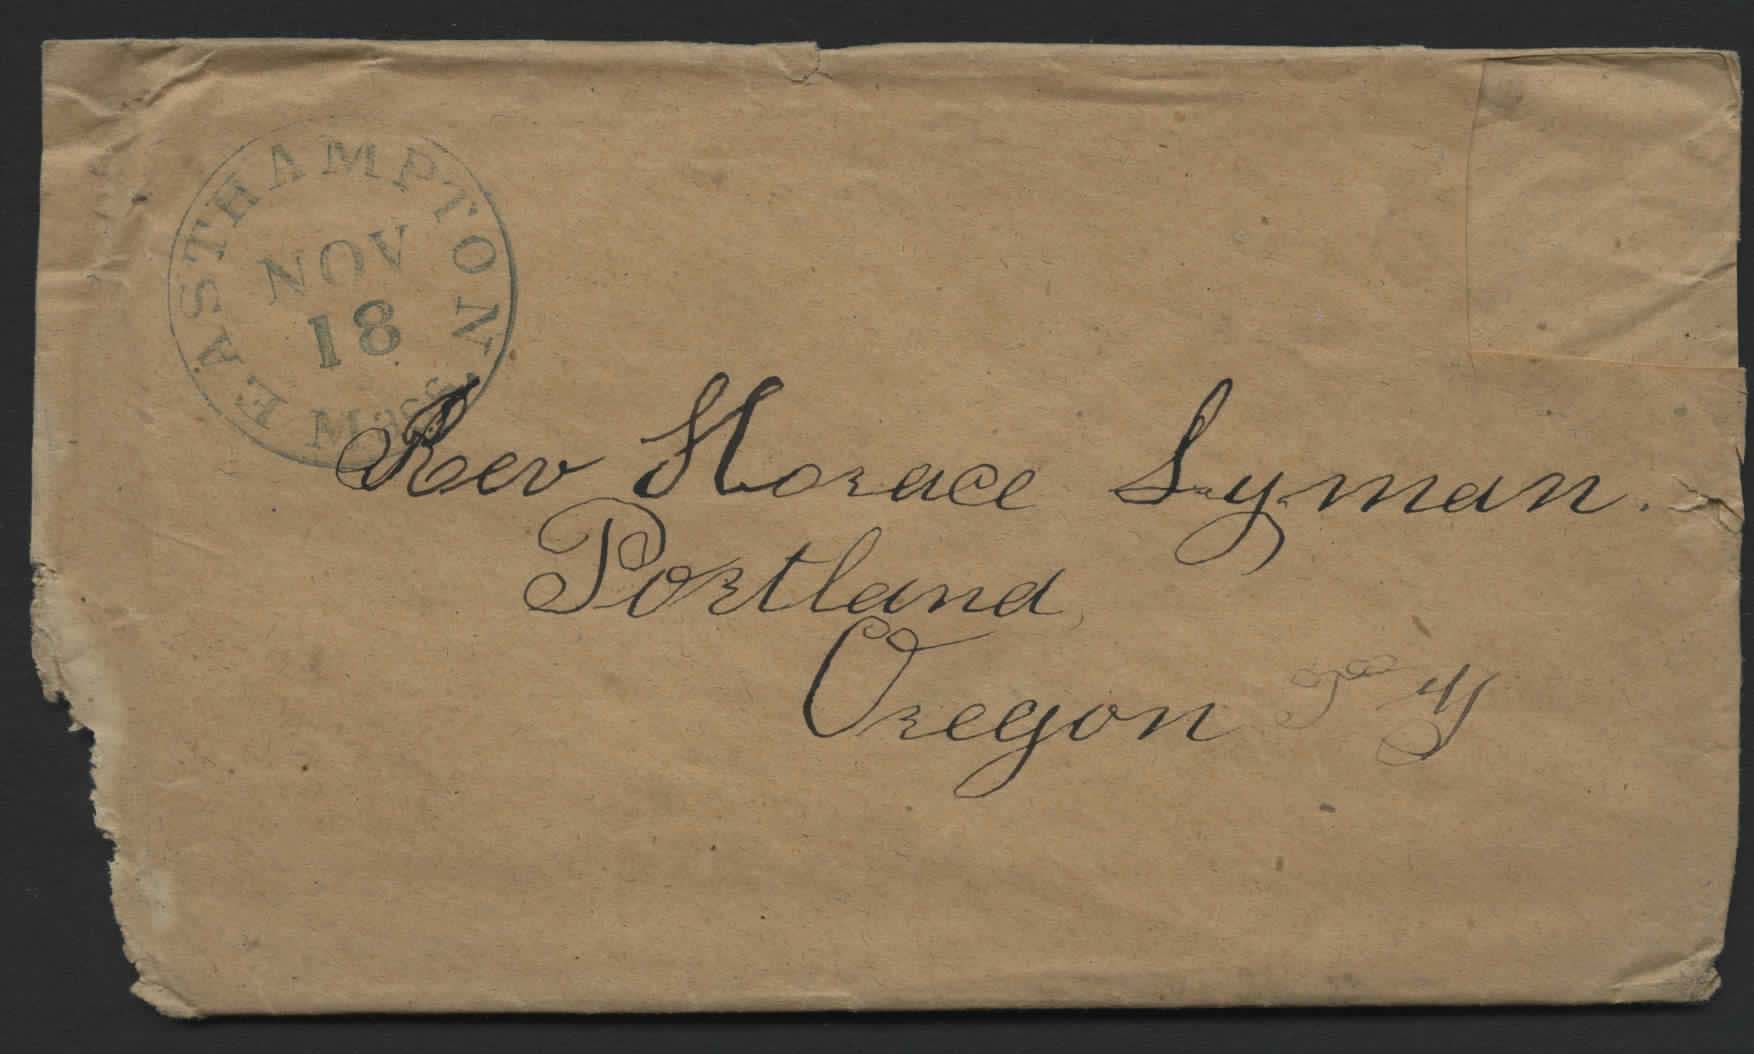 EASTHAMPTON Mass.
NOV
18
Rev Horace Lyman.
Portland
Oregon Ty